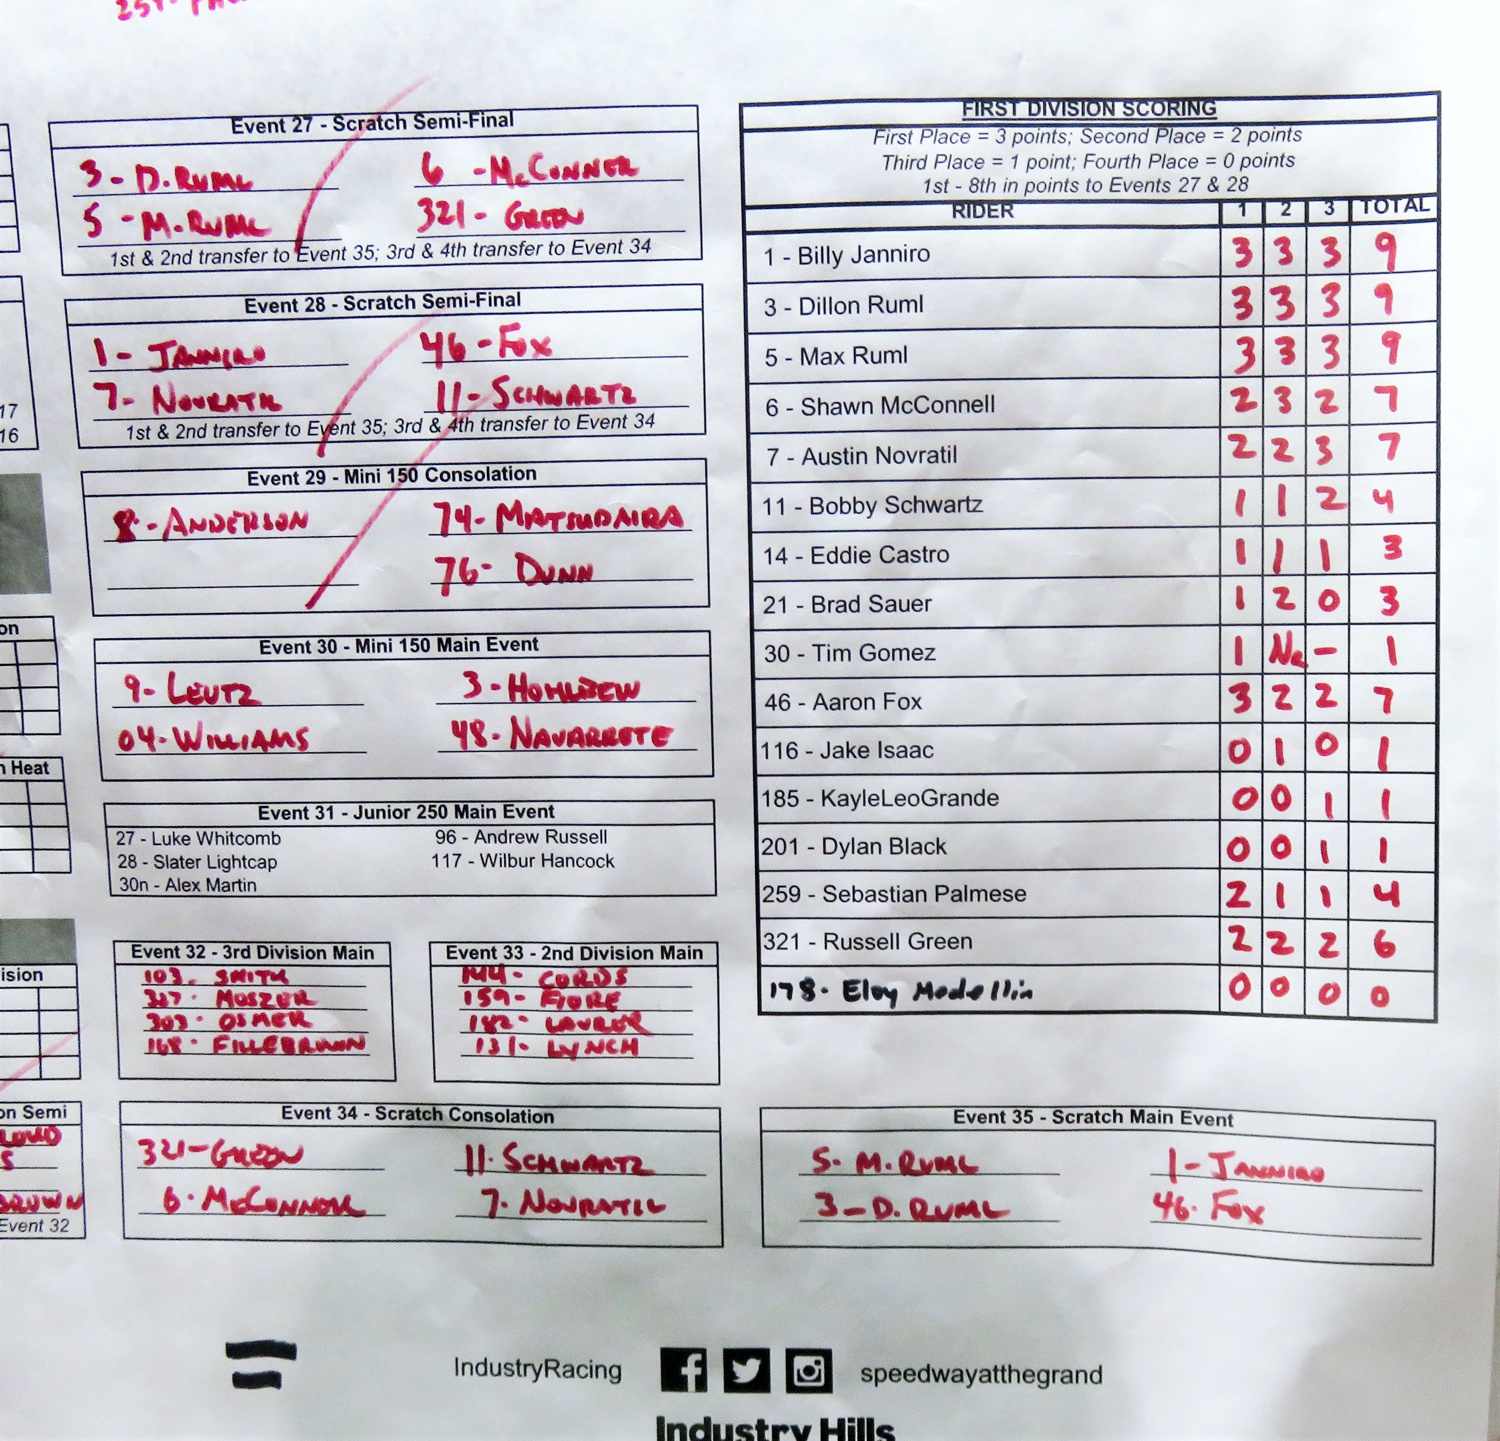 Event 27 - Scratch Semi-Final
3 - D. RUML 6 - McCONNER
5 - M. RUML 321 - GREEN
1st & 2nd transfer to Event 35; 3rd & 4th transfer to Event 34
Event 28 - Scratch Semi-Final
1 - JANNIRO 46 - FOX
7 - NOVRATIL 11 - SCHWARTZ
1st & 2nd transfer to Event 35; 3rd & 4th transfer to Event 34
17
16
Event 29 - Mini 150 Consolation
8 - ANDERSON 74 - MATSUDAIRA
76 - DUNN
on
Event 30 - Mini 150 Main Event
9 - LEUTZ 3 - HOHLBEW
04 - WILLIAMS 48 - NAVARRETE
Heat
Event 31 - Junior 250 Main Event
27 - Luke Whitcomb 96 - Andrew Russell
28 - Slater Lightcap 117 - Wilbur Hancock
30n - Alex Martin
Event 32 - 3rd Division Main
103. SMITH
MOSZER
303 - OSMER
168 - FILLEBROWN
Event 33 - 2nd Division Main
144 - CORDS
159 - FIORE
182 - LAURER
131 - LYNCH
ision
on Semi
BROWN
Event 32
Event 34 - Scratch Consolation
321 - GREEN 11. SCHWARTZ
6 - McCONNELL 7. NOVRATIL
FIRST DIVISION SCORING
First Place = 3 points; Second Place = 2 points
Third Place = 1 point; Fourth Place = 0 points
1st - 8th in points to Events 27 & 28
RIDER 1 2 3 TOTAL
1 - Billy Janniro 3 3 3 9
3 - Dillon Ruml 3 3 3 9
5 - Max Ruml 3 3 3 9
6 - Shawn McConnell 2 3 2 7
7 - Austin Novratil 2 2 3 7
11 - Bobby Schwartz 1 1 2 4
14 - Eddie Castro 1 1 1 3
21 - Brad Sauer 1 2 0 3
30 - Tim Gomez 1 Ne - 1
46 - Aaron Fox 3 2 2 7
116 - Jake Isaac 0 1 0 1
185 - KayleLeoGrande 0 0 1 1
201 - Dylan Black 0 0 1 1
259 - Sebastian Palmese 2 1 1 4
321 - Russell Green 2 2 2 6
178. Eloy Medellin 0 0 0 0
Event 35 - Scratch Main Event
5. M. RUML 1 - JANNIRO
3 - D. RUML 46. FOX
IndustryRacing speedwayatthegrand
Industry Hills